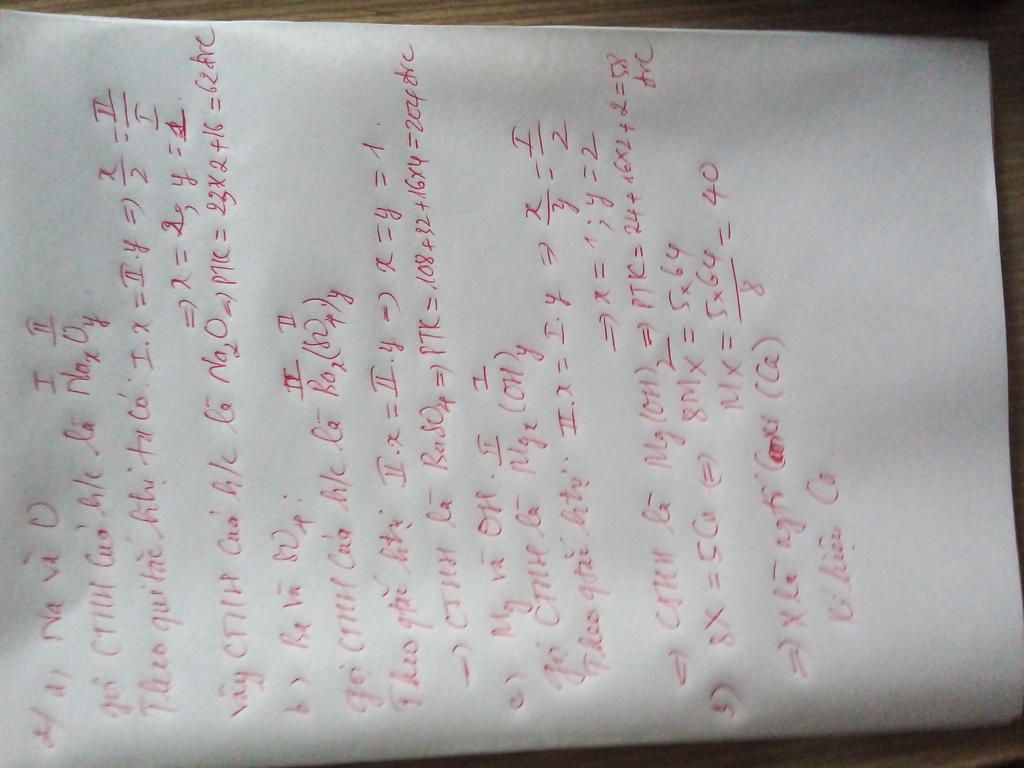 2/ a, Na và O
gọi CTHH của h/c là NaxOy I II
Theo qui tắc htrị ta có: I.x = II.y => x/2 = II/I
=> x = 2; y = 1
vậy CTHH của h/c là Na2O => PTK = 23x2+16 = 62đvc
b, Ba và SO4:
gọi CTHH của h/c là Bax(SO4)y II II
Theo qtắc htrị II.x = II.y => x = y = 1
-> CTHH là BaSO4 => PTK = 108+32+16x4=204đvc
c, Mg và OH.
gọi CTHH là Mgx(OH)y II I
Theo qtắc htrị: II.x = I.y => x/y = I/2
=> x = 1; y = 2
=> CTHH là Mg(OH)2 => PTK = 24+16x2+2=58 đvc
3) 8X = 5Cu <=> 8MX = 5x64
MX = 5x64/8 = 40
=> X là ngtố Canxi (Ca)
Kí hiệu Ca